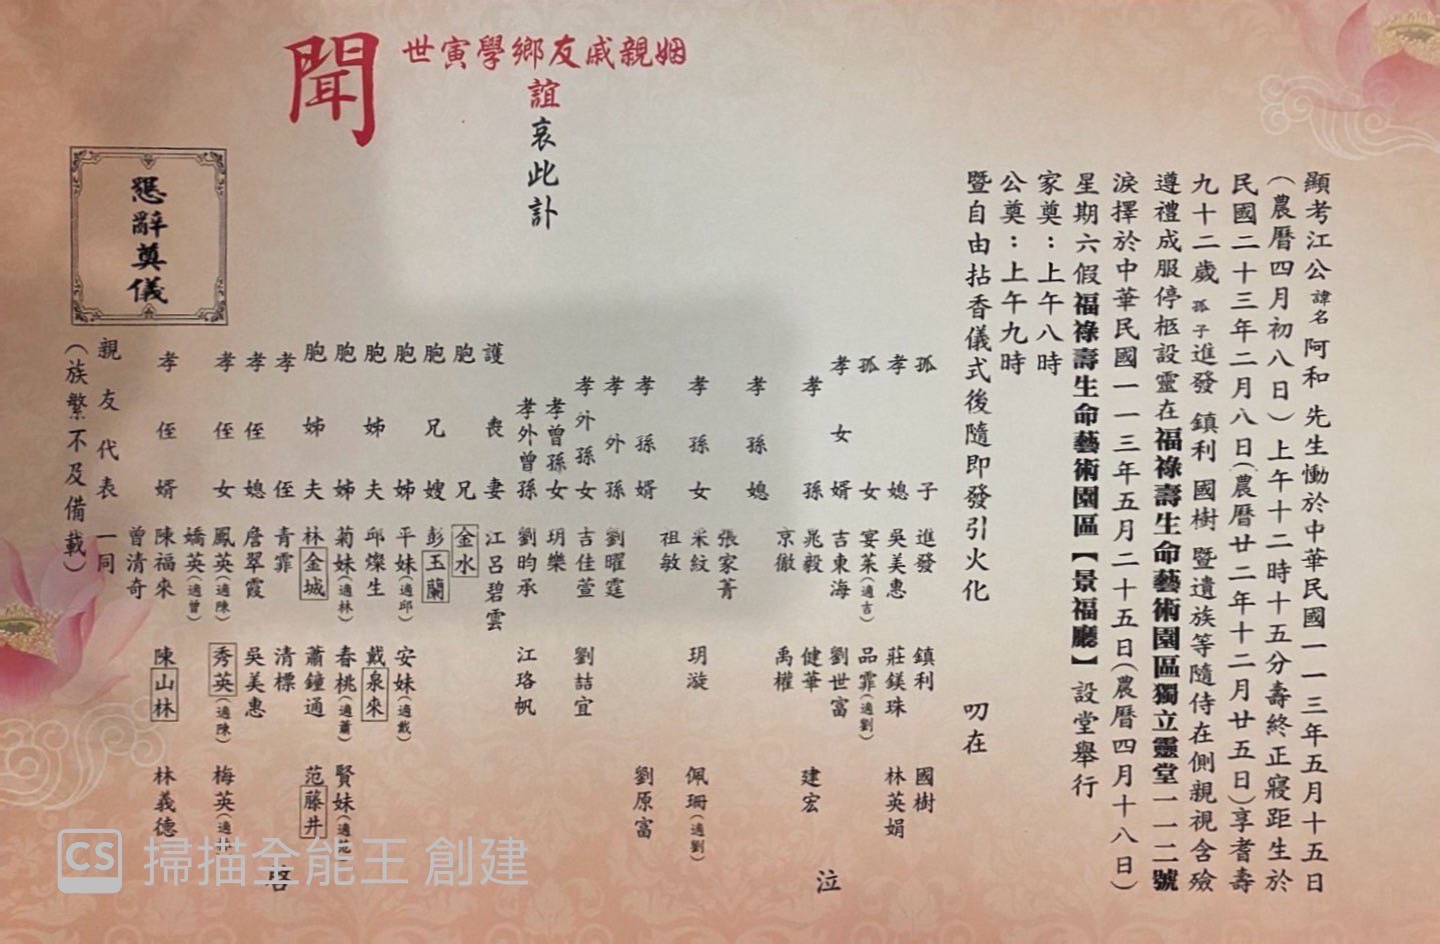 顯考江公諱名阿和 先生慟於中華民國一一三年五月十五日
(農曆四月初八日)上午十二時十五分壽終正寢距生於
民國二十三年二月八日(農曆廿二年十二月廿五日)享耆壽
九十二歲孤子進發 鎮利 國樹 暨遺族等隨侍在側親視含殮
遵禮成服停柩設靈在福祿壽生命藝術園區獨立靈堂一一二號
淚擇於中華民國一一三年五月二十五日(農曆四月十八日)
星期六假福祿壽生命藝術園區【景福廳】設堂舉行
家奠：上午八時
公奠：上午九時
暨自由拈香儀式後隨即發引火化 叨在
姻親戚友鄉學寅世
誼哀此訃
聞
孤子 進發 鎮利 國樹
孝媳 吳美惠 莊鎂珠 林英娟
孤女 宴茱(適吉) 品霏(適劉)
孝女婿 吉東海 劉世富
孝孫 兆毅 健華 建宏
京徹 禹權
孝孫媳 張家菁
孝孫女 采紋 玥漩 佩珊(適劉)
祖敏
孝孫婿 劉原富
孝外孫 劉曜霆
孝外孫女 吉佳萱 劉喆宜
孝曾孫女 玥樂
孝外曾孫 劉昀承 江珞帆
護喪妻 江呂碧雲
胞兄 金水
胞兄嫂 彭玉蘭
胞姊 平妹(適邱) 安妹(適戴)
胞姊夫 邱燦生 戴泉來
胞姊 菊妹(適林) 春桃(適蕭) 賢妹(適范)
胞姊夫 林金城 蕭鐘通 范藤井
孝侄 青霏 清標
孝侄媳 詹翠霞 吳美惠
孝侄女 鳳英(適陳) 秀英(適陳) 梅英(適林)
嬌英(適曾)
孝侄婿 陳福來 陳山林 林義德
曾清奇
親友代表一同
(族繁不及備載)
泣
啓
懇辭奠儀
CS 掃描全能王 創建